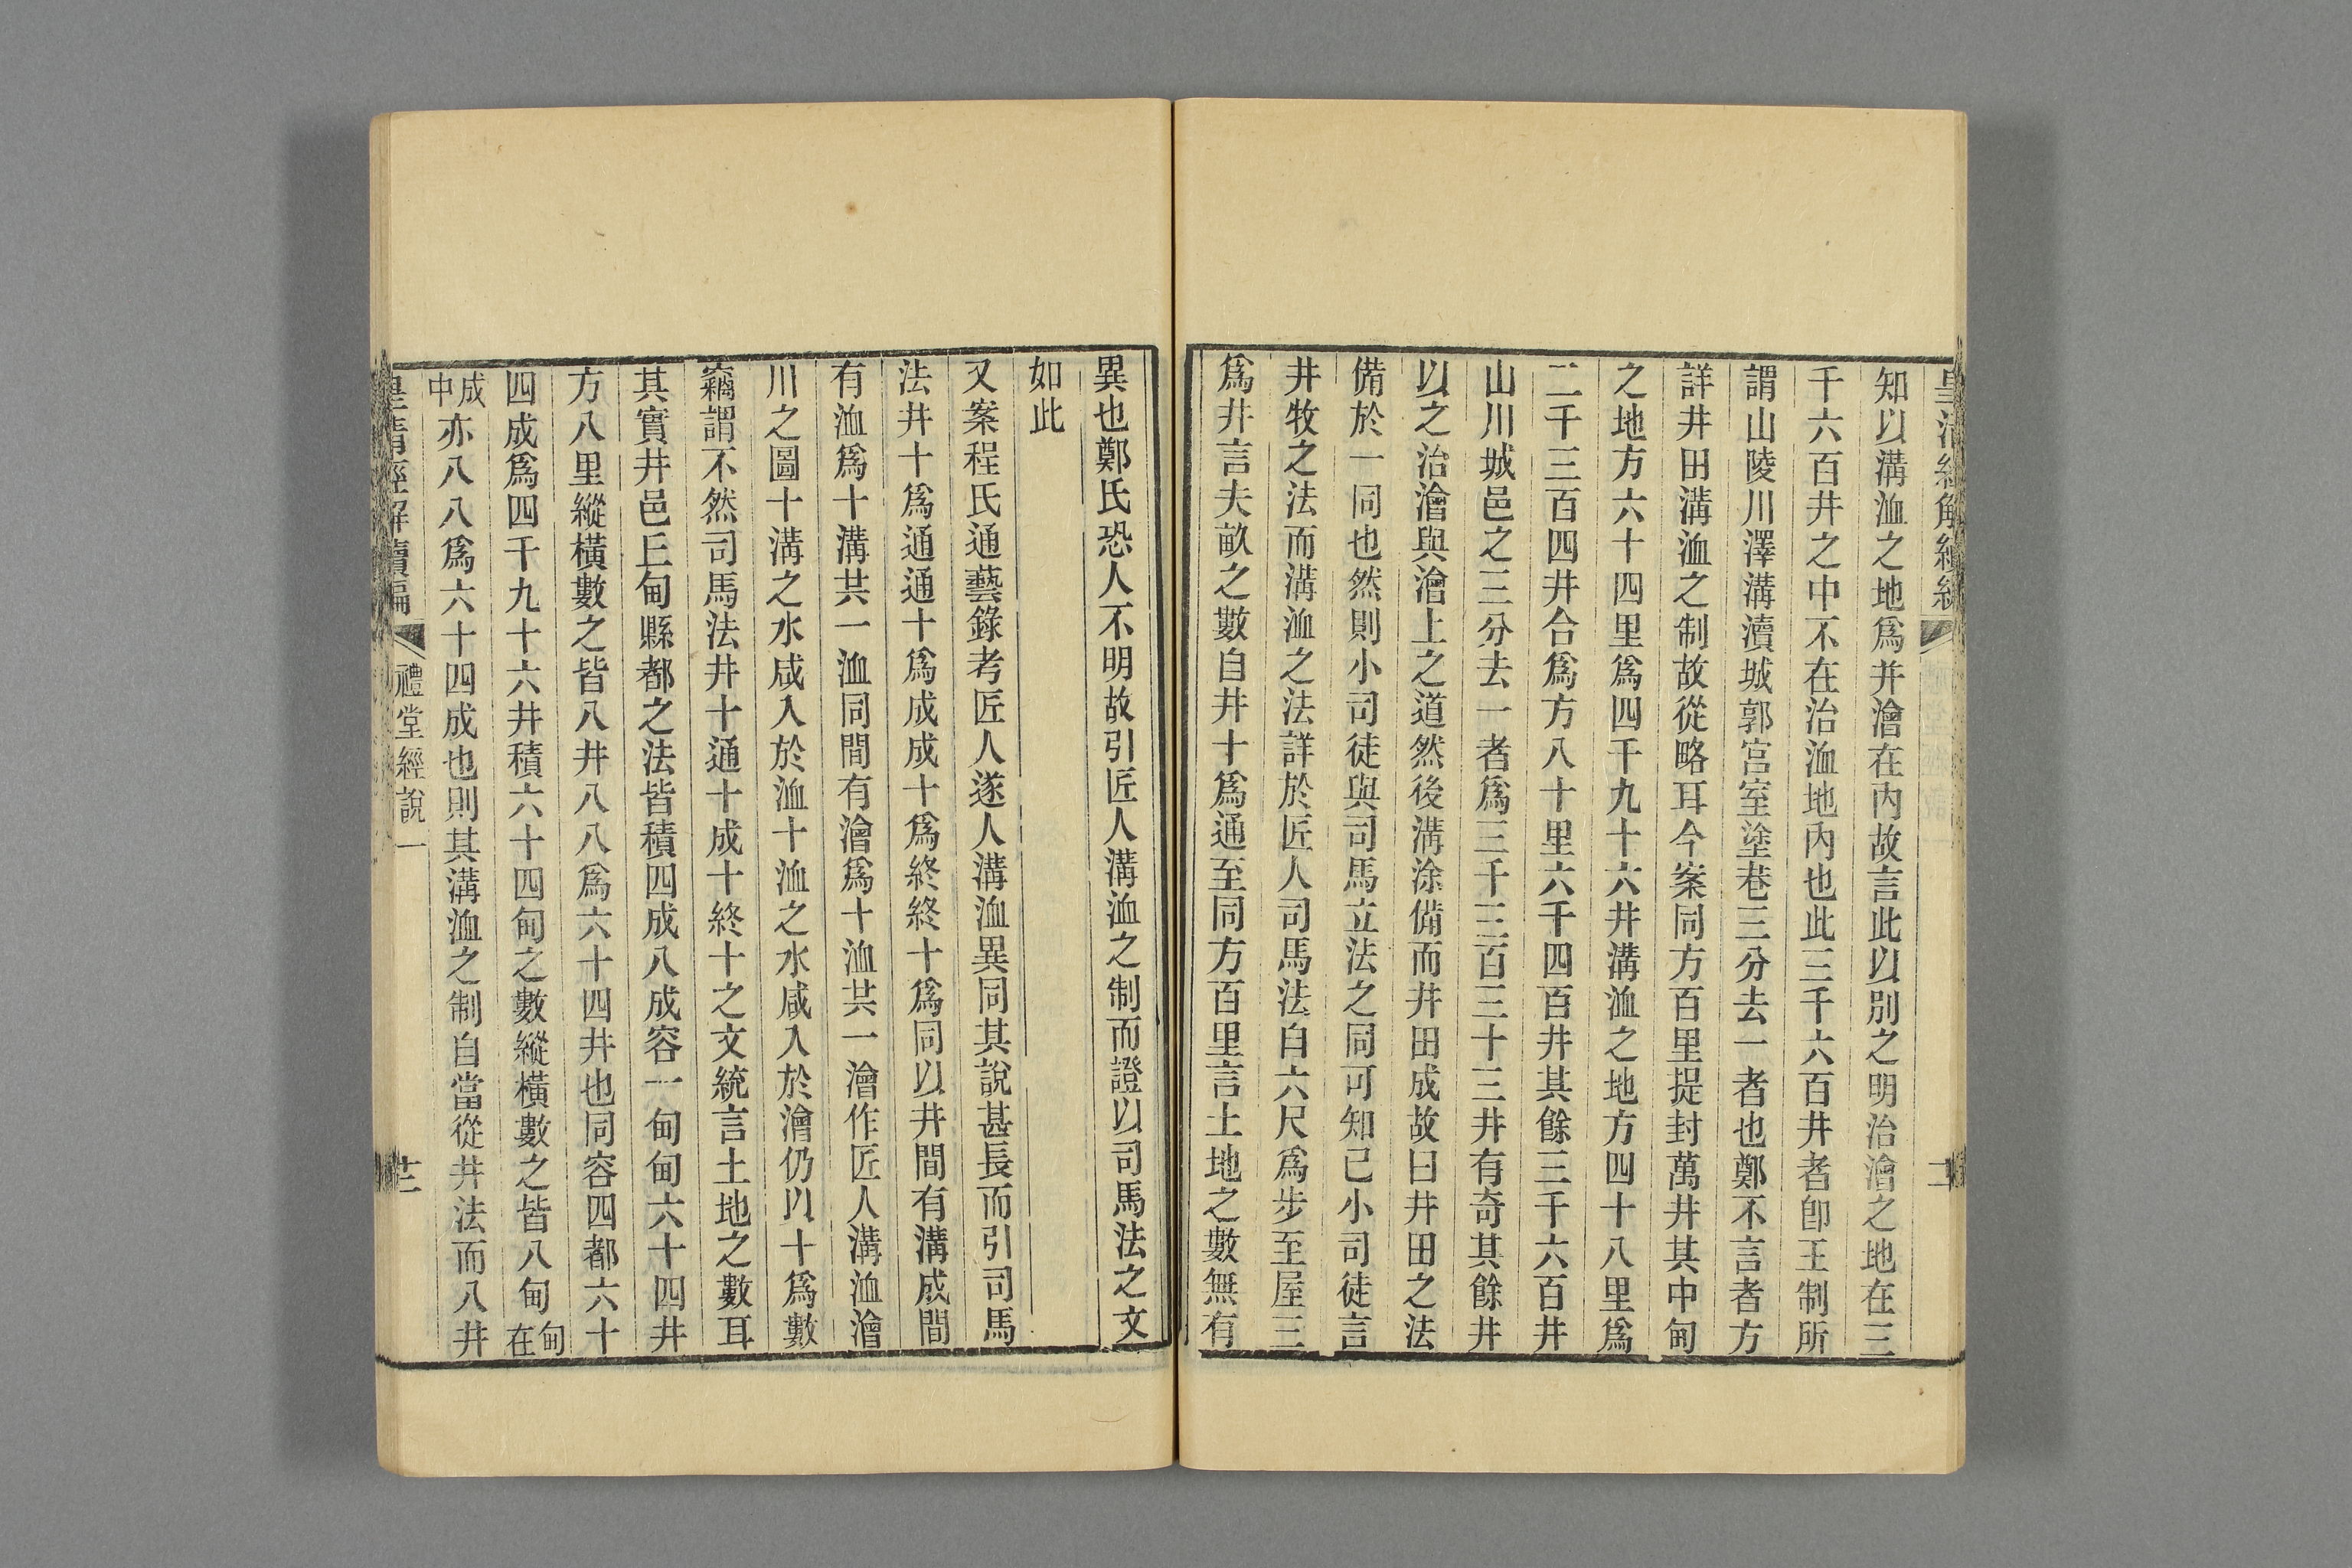 皇清經解續
知以溝洫之地爲井澮在內故言此以別之明治澮之地在三
千六百井之中不在治洫地內也此三千六百井者卽王制所
謂山陵川澤溝瀆城郭宮室塗巷三分去一者也鄭不言者方
詳井田溝洫之制故從略耳今案同方百里提封萬井其中甸
之地方六十四里爲四千九十六井溝洫之地方四十八里爲
二千三百四井合爲方八十里六千四百井其餘三千六百井
山川城邑之三分去一者爲三千三百三十三井有奇其餘井
以之治澮與澮上之道然後溝涂備而井田成故曰井田之法
備於一同也然則小司徒與司馬立法之同可知已小司徒言
井牧之法而溝洫之法詳於匠人司馬法自六尺爲步至屋三
爲井言夫畝之數自井十爲通至同方百里言土地之數無有
異也鄭氏恐人不明故引匠人溝洫之制而證以司馬法之文
如此
又案程氏通藝錄考匠人遂人溝洫異同其說甚長而引司馬
法井十爲通通十爲成成十爲終終十爲同以井間有溝成間
有洫爲十溝共一洫同間有澮爲十洫共一澮作匠人溝洫澮
川之圖十溝之水咸入於洫十洫之水咸入於澮仍以十爲數
竊謂不然司馬法井十通十成十終十之文統言土地之數耳
其實井邑丘甸縣都之法皆積四成八成容一甸甸六十四井
方八里縱橫數之皆八井八八爲六十四井也同容四都六十
四成爲四千九十六井積六十四甸之數縱橫數之皆八甸甸在
成中亦八八爲六十四成也則其溝洫之制自當從井法而八井
皇清經解續編
禮堂經說一